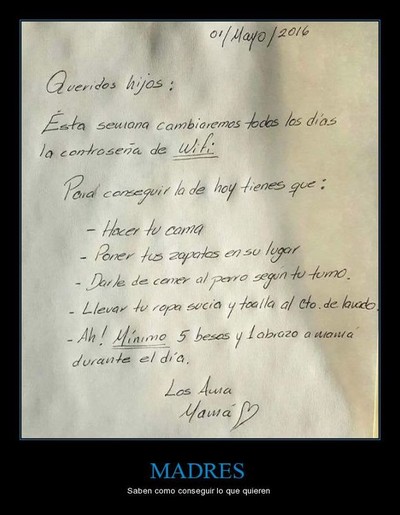 01/Mayo/2016
Queridos hijos:
Ésta semana cambiaremos todos los días
la contraseña de Wifi
Para conseguir la de hoy tienes que:
- Hacer tu cama
- Poner tus zapatos en su lugar
- Darle de comer al perro según tu turno.
- Llevar tu ropa sucia y toalla al Cto. de lavado.
- Ah! Mínimo 5 besos y 1 abrazo a mamá
durante el día.
Los Ama
Mamá
MADRES
Saben como conseguir lo que quieren